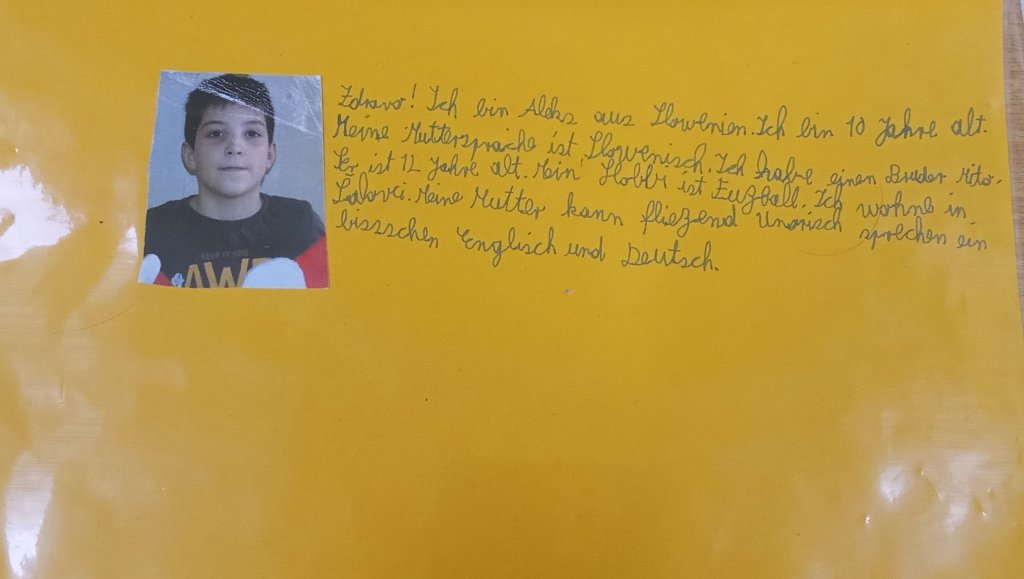 Zdravo! Ich bin Aleks aus Slowenien. Ich bin 10 Jahre alt.
Meine Muttersprache ist Slowenisch. Ich habe einen Bruder Mito.
Er ist 12 Jahre alt. Mein Hobbi ist Fußball. Ich wohne in
Meine Mutter kann fließend Unarisch sprechen ein
bissschen Englisch und Deutsch.
AWE